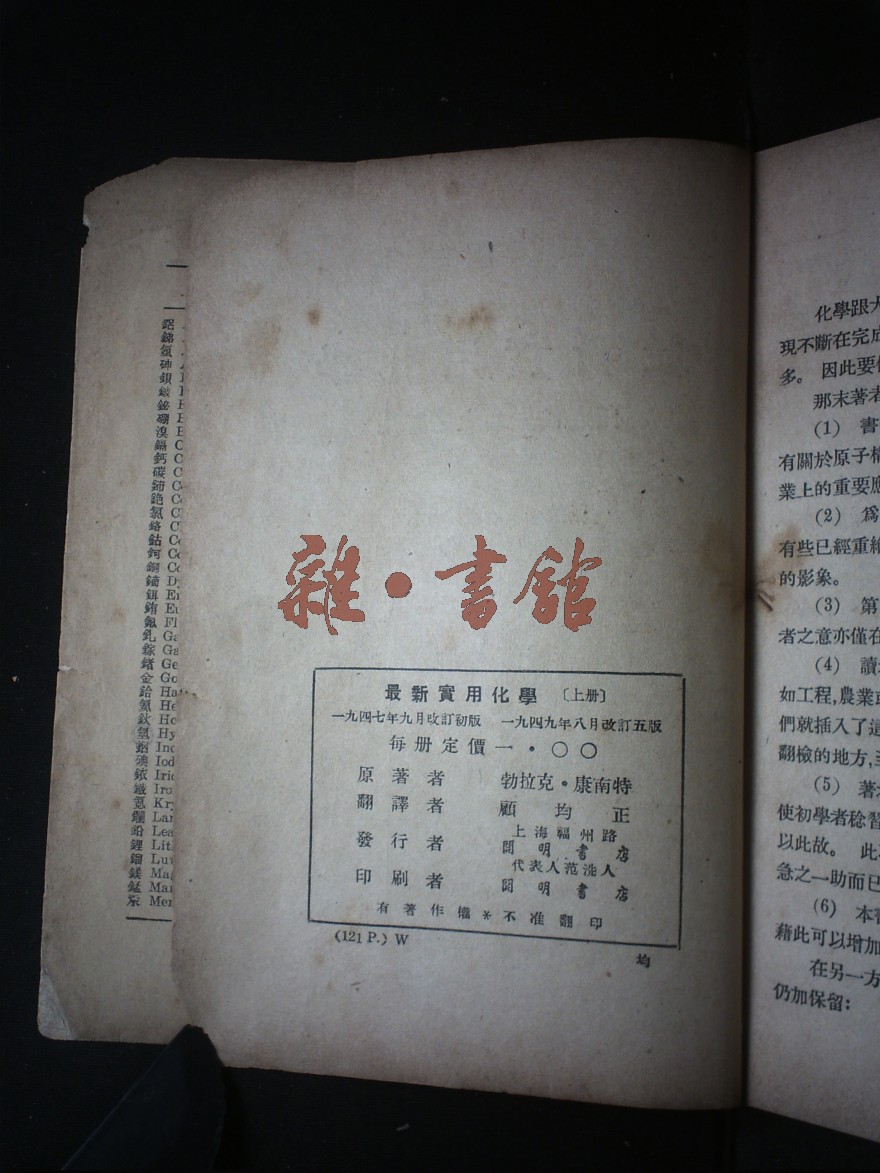 鋁
銻
氬
砷
鋇
鈹
鉍
硼
溴
鎘
鈣
碳
鈰 Ce
銫 Ce
氯 Cl
鉻 Cl
鈷 Co
鈳 Co
銅 Co
鏑 Dy
鉺 Er
銪 Eu
氟 Fl
釓 Ga
鎵 Ga
鍺 Ge
金 Go
鉿 Ha
氦 He
鈥 Ho
氫 Hy
銦 Ind
碘 Iod
銥 Iric
鐵 Iro
氪 Kry
鑭 Lan
鉛 Lea
鋰 Lit
鎦 Lut
鎂 Mag
錳 Man
汞 Mer
雜•書館
最新實用化學〔上册〕
一九四七年九月改訂初版 一九四九年八月改訂五版
每册定價一・〇〇
原著者 勃拉克・康南特
翻譯者 顧均正
發行者 上海福州路
開明書店
代表人范洗人
印刷者 開明書店
有著作權*不准翻印
(121 P.) W
均
化學跟大
現不斷在完成
多。 因此要
那末著者
(1) 書
有關於原子構
業上的重要應
(2) 爲
有些已經重繪
的影象。
(3) 第
者之意亦僅在
(4) 讀
如工程,農業或
們就插入了這
翻檢的地方,至
(5) 著
使初學者稔習
以此故。 此
急之一助而已
(6) 本書
藉此可以增加
在另一方
仍加保留: